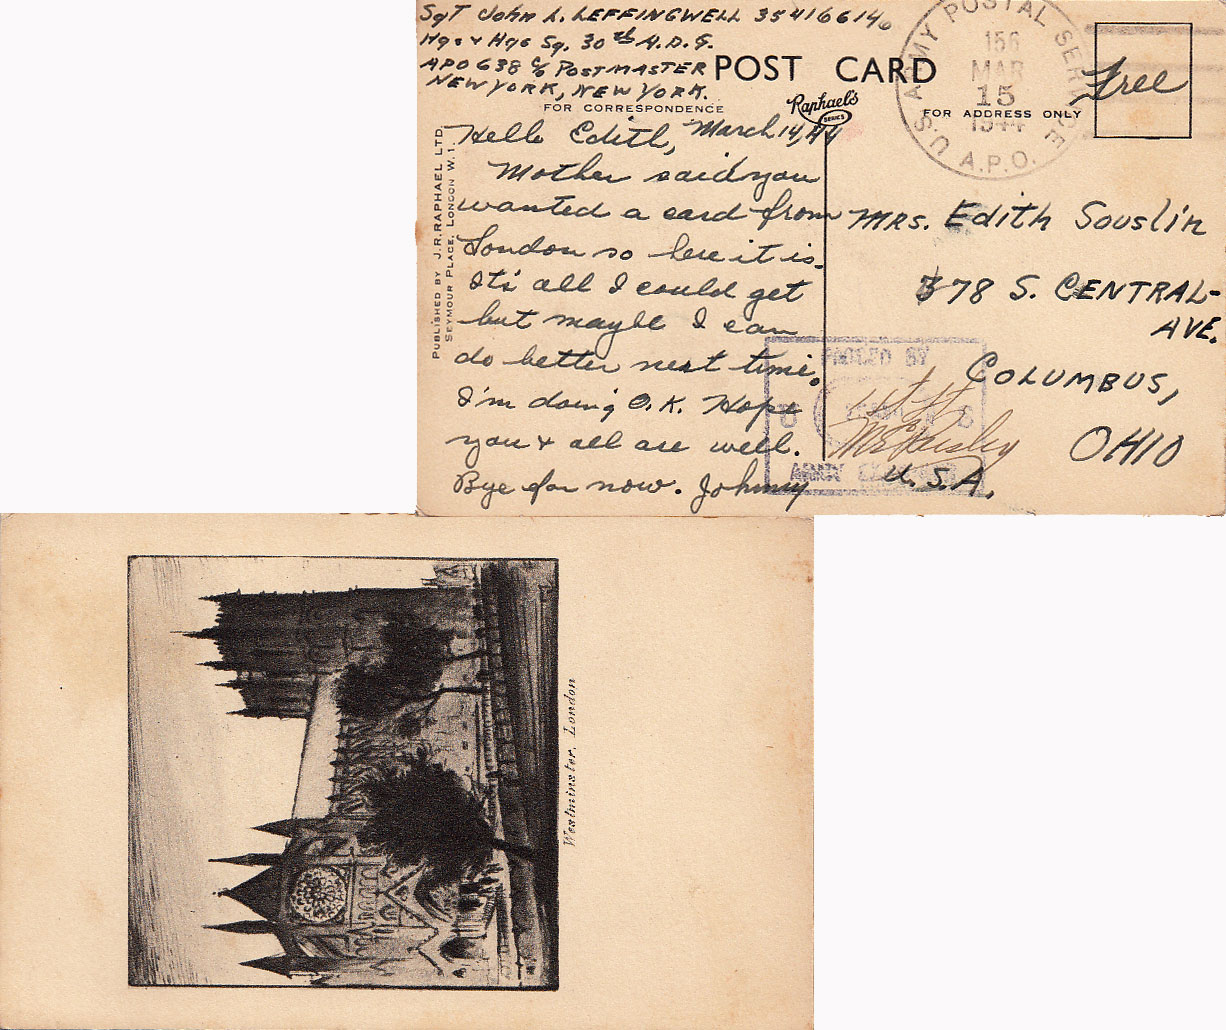 Sgt John L. LEFFINGWELL 35416614
Hqs & Hqs Sq. 30th A.D.G.
APO 638 c/o POSTMASTER
NEW YORK, NEW YORK.
POST CARD
FOR CORRESPONDENCE
Raphael's
SERIES
FOR ADDRESS ONLY
Free
U.S. ARMY POSTAL SERVICE
A.P.O.
156
MAR
15
1944
PUBLISHED BY J.R.RAPHAEL LTD.
SEYMOUR PLACE, LONDON W.1.
Hello Edith, March 14, 44
Mother said you
wanted a card from
London so here it is.
Its all I could get
but maybe I can
do better next time.
I'm doing O.K. Hope
you & all are well.
Bye for now. Johnny
MRS. Edith Souslin
378 S. CENTRAL-
AVE.
COLUMBUS,
OHIO
U.S.A.
PASSED BY
U S
ARMY EXAMINER
1st Lt
Westminster, London